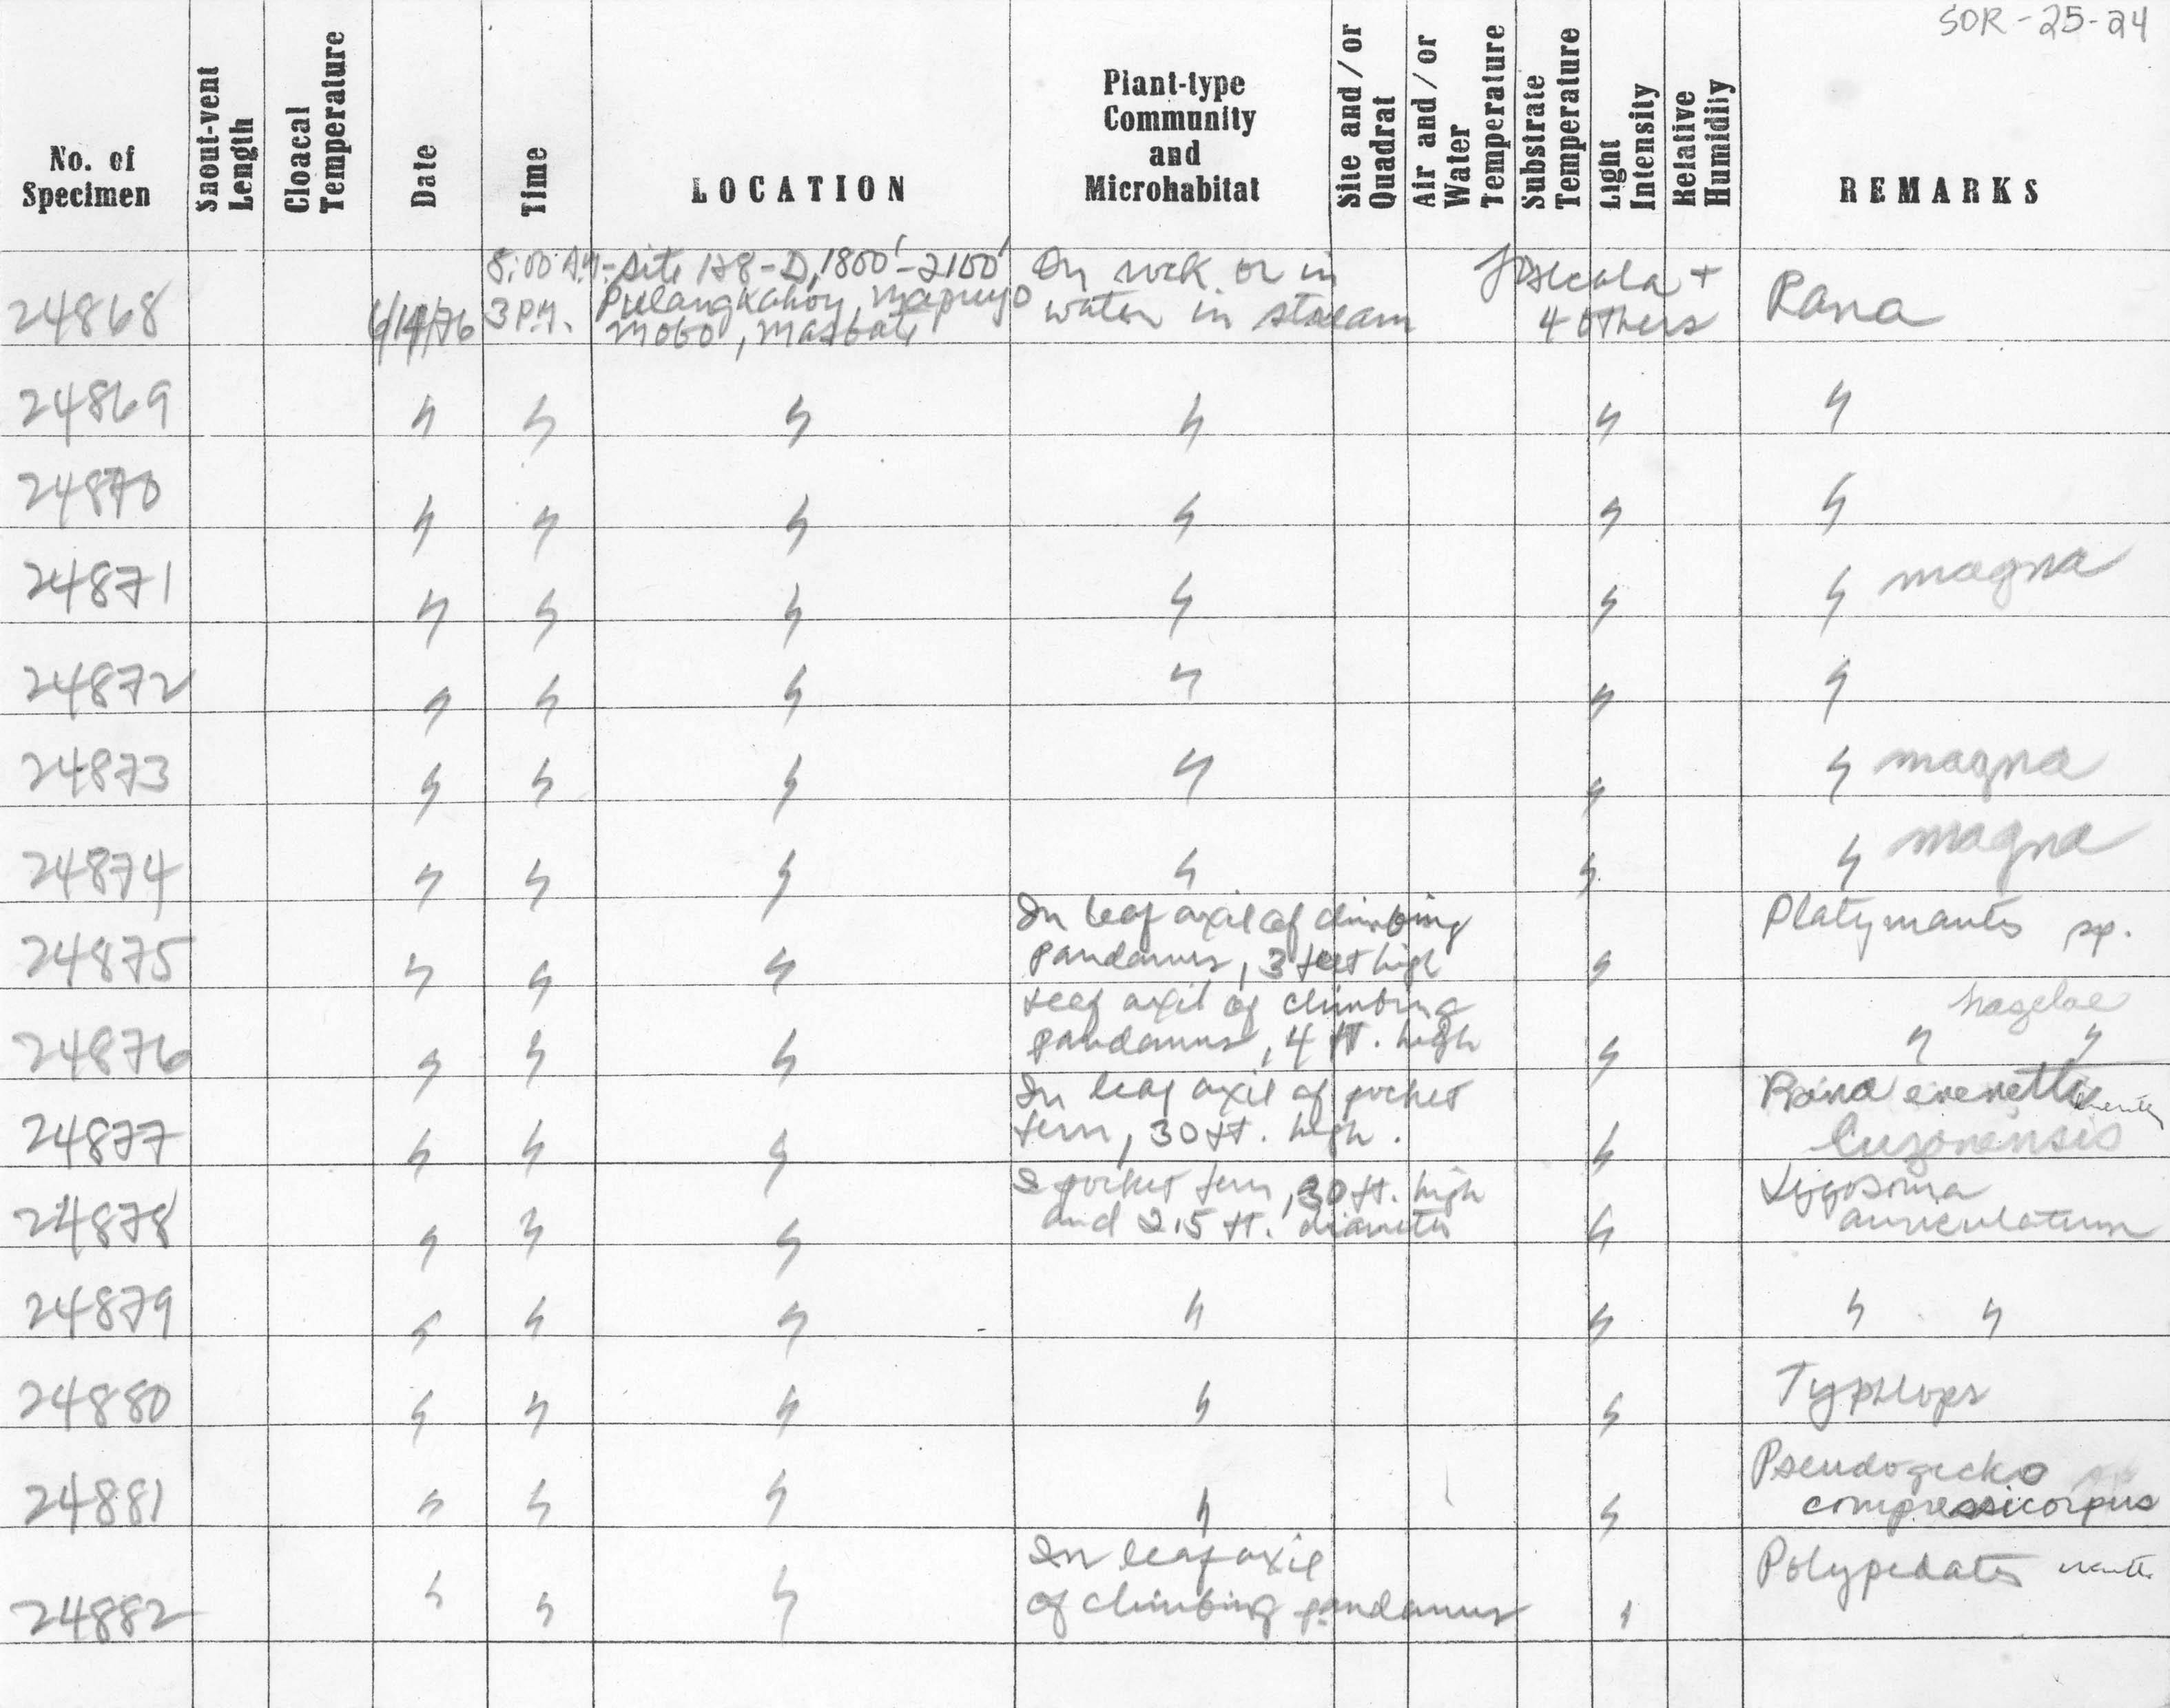 SOR-25-24
No. of Specimen | Snout-vent Length | Cloacal Temperature | Date | Time | LOCATION | Plant-type Community and Microhabitat | Site and/or Quadrat | Air and/or Water Temperature | Substrate Temperature | Light Intensity | Relative Humidity | REMARKS
24868 | 6/14/76 | 8:00 A.M.- 3 P.M. | Site 128-D, 1800'-2100' Pulangkahoy, Mapuyo Mobo, Masbate | On rock or in water in stream | + 4 others | Rana
24869 | " | " | " | " | " | "
24870 | " | " | " | " | " | "
24871 | " | " | " | " | " | " magna
24872 | " | " | " | " | " | "
24873 | " | " | " | " | " | " magna
24874 | " | " | " | " | " | " magna
24875 | " | " | " | In leaf axil of climbing pandanus, 3 feet high | " | Platymantis sp.
24876 | " | " | " | Leaf axil of climbing pandanus, 4 ft. high | " | hazelae " "
24877 | " | " | " | In leaf axil of pocket fern, 30 ft. high. | " | Rana everetti luzonensis
24878 | " | " | " | 2 pocket fern, 30 ft. high and 2.5 ft. diameter | " | Lygosoma auriculatum
24879 | " | " | " | " | " | " "
24880 | " | " | " | " | " | Typhlops
24881 | " | " | " | " | " | Pseudogecko compressicorpus
24882 | " | " | " | In leaf axil of climbing pandanus | " | Polypedates